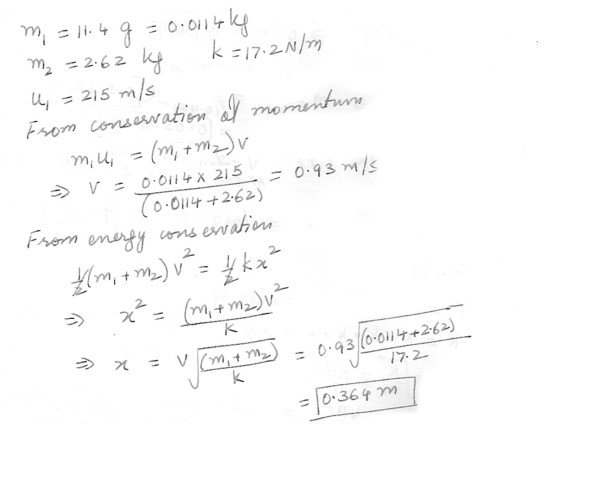 m₁ = 11.4 g = 0.0114 kg
m₂ = 2.62 kg k = 17.2 N/m
u₁ = 215 m/s
From conservation of momentum
m₁u₁ = (m₁ + m₂) v
⇒ v = (0.0114 × 215) / (0.0114 + 2.62) = 0.93 m/s
From energy conservation
½(m₁ + m₂) v² = ½ k x²
⇒ x² = (m₁ + m₂) v² / k
⇒ x = v √((m₁ + m₂) / k) = 0.93 √((0.0114 + 2.62) / 17.2)
= 0.364 m